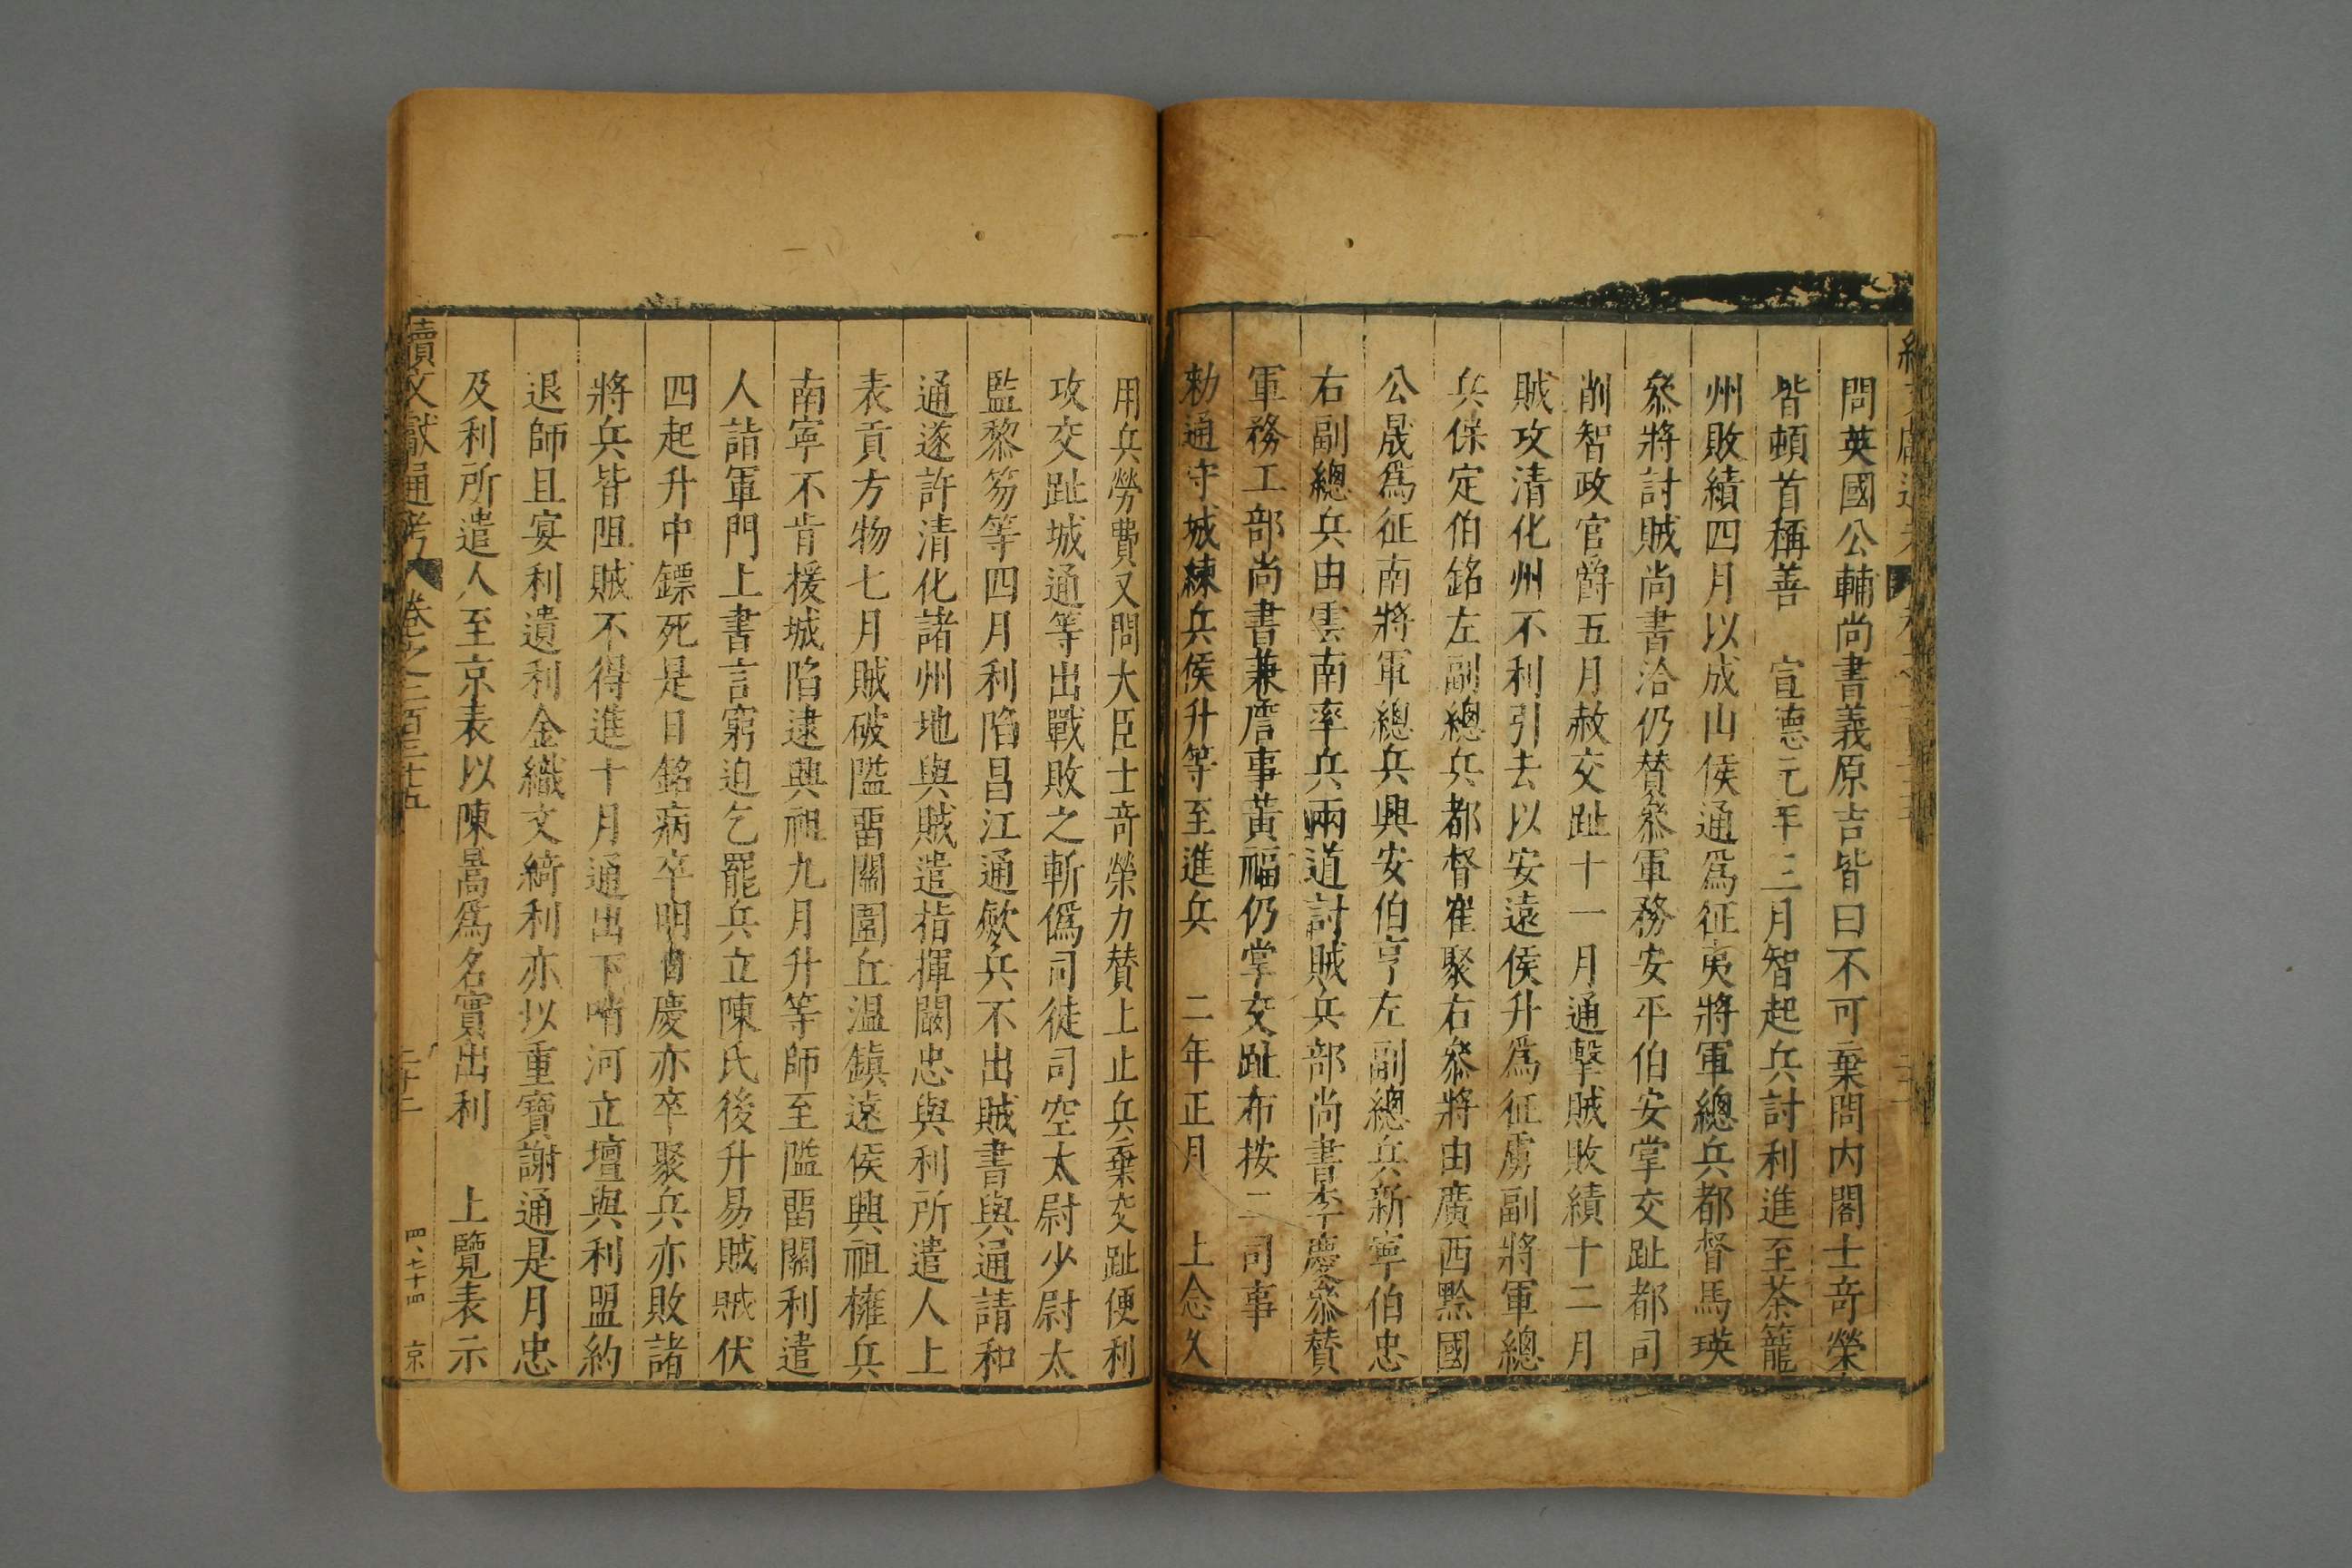 問英國公輔尚書義原吉皆曰不可棄問内閣士竒榮
皆頓首稱善　宣德元年三月智起兵討利進至茶籠
州敗績四月以成山侯通爲征夷將軍總兵都督馬瑛
叅將討賊尚書洽仍賛叅軍務安平伯安掌交趾都司
削智政官爵五月赦交趾十一月通擊賊敗績十二月
賊攻清化州不利引去以安遠侯升爲征虜副將軍總
兵保定伯銘左副總兵都督崔聚右叅將由廣西黔國
公晟爲征南將軍總兵興安伯亨左副總兵新寧伯忠
右副總兵由雲南率兵兩道討賊兵部尚書李慶叅賛
軍務工部尚書兼詹事黃福仍掌交趾布按二司事
勑通守城練兵侯升等至進兵　二年正月　上念久
用兵勞費又問大臣士竒榮力賛上止兵棄交趾便利
攻交趾城通等出戰敗之斬僞司徒司空太尉少尉太
監黎笏等四月利陷昌江通歛兵不出賊書與通請和
通遂許清化諸州地與賊遣指揮闞忠與利所遣人上
表貢方物七月賊破隘畱關圍丘温鎮遠侯興祖擁兵
南寧不肯援城陷逮興祖九月升等師至隘畱關利遣
人詣軍門上書言窮迫乞罷兵立陳氏後升易賊賊伏
四起升中鏢死是日銘病卒明日慶亦卒聚兵亦敗諸
將兵皆阻賊不得進十月通出下哨河立壇與利盟約
退師且宴利遺利金織文綺利亦以重寶謝通是月忠
及利所遣人至京表以陳暠爲名實出利　上覽表示
續文獻通考　卷之二百三十五　二十二　四、七十四　京